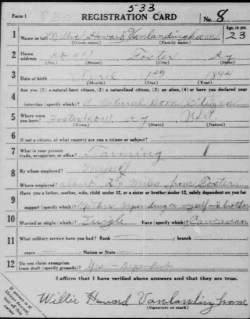 533
Form 1 REGISTRATION CARD No. 8
1 Name in full Willie Howard Vanlandingham Age, in yrs. 23
(Given name) (Family name)
2 Home address Foster Ky
(No.) (Street) (City) (State)
3 Date of birth
(Month) (Day) (Year)
4 Are you (1) a natural-born citizen, (2) a naturalized citizen, (3) an alien, (4) or have you declared your
intention (specify which)? A Natural born Citizen
5 Where were you born? Foster Ky
(Town) (State) (Nation)
6 If not a citizen, of what country are you a citizen or subject?
7 What is your present trade, occupation, or office? Farming
8 By whom employed?
Where employed? from Foster
9 Have you a father, mother, wife, child under 12, or a sister or brother under 12, solely dependent on you for
support (specify which)?
10 Married or single (which)? Single Race (specify which)? Caucasian
11 What military service have you had? Rank ; branch
years ; Nation or State
12 Do you claim exemption from draft (specify grounds)? Yes
I affirm that I have verified above answers and that they are true.
Willie Howard Vanlandingham
(Signature or mark)